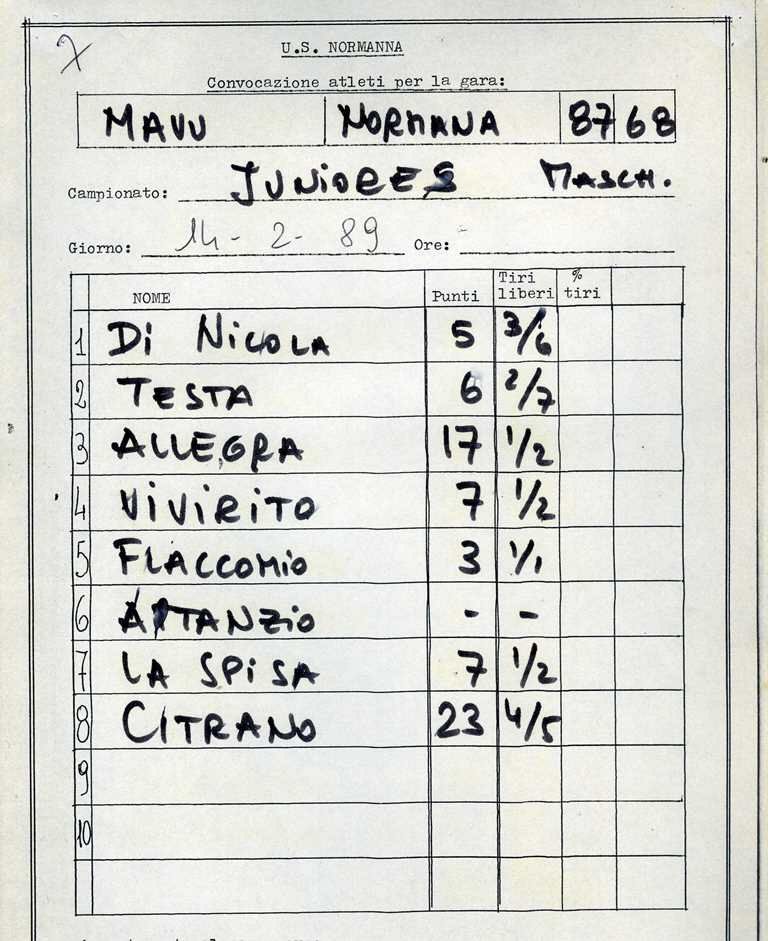 7
U.S. NORMANNA
Convocazione atleti per la gara:
MAVV NORMANA 87 68
Campionato: JUNIORES MASCH.
Giorno: 14-2-89 Ore:
NOME Punti Tiri liberi % tiri
1 Di NicoLA 5 3/6
2 TESTA 6 2/7
3 ALLEGRA 17 1/2
4 ViViRiTO 7 1/2
5 FLACCOMiO 3 1/1
6 - -
7 LA SPiSA 7 1/2
8 CITRANO 23 4/5
9
10